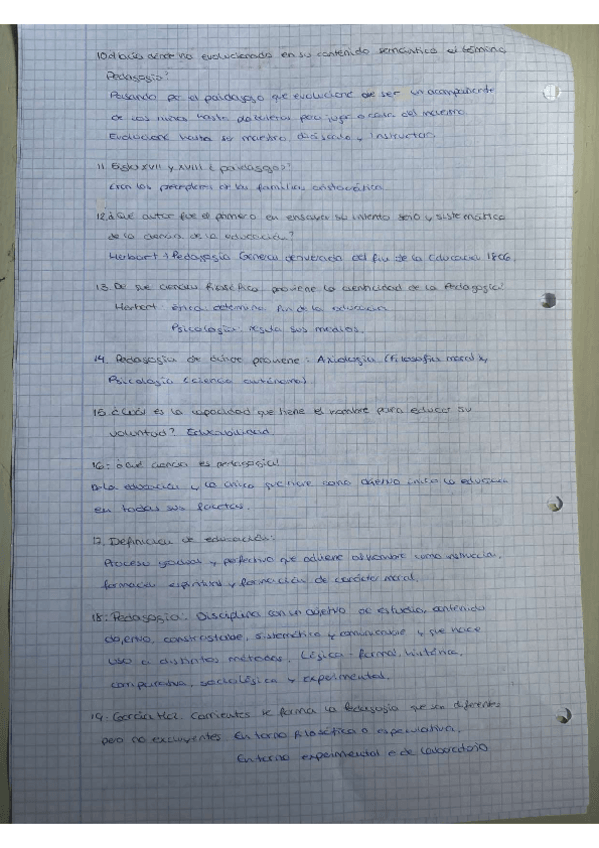 evolucionado en su contenido semántico el término
Pedagogía?
Pasando por el paidagogo que evolucione de ser un acompañante
de los niños hasta del maestro.
Evolucione hasta ser maestro, didáscalo, instructor.
11. Siglo XVII y XVIII ¿paidagogo?
Eran los preceptores de las familias aristocrática
12. ¿Qué autor fue el primero en ensayar su intento serio y sistemático
de la ciencia de la educación?
Herbart: Pedagogía General derivada del fin de la Educación 1806.
13. De que ciencia filosófica proviene la cientificidad de la Pedagogía?
Herbart: ética determina fin de la educación
Psicología: regula sus medios.
14. Pedagogía de donde proviene: Axiología (filosofía moral) y
Psicología (ciencia autónoma)
15. ¿Cuál es la capacidad que tiene el hombre para educar su
voluntad? Educabilidad
16: ¿Qué ciencia es pedagógica?
la educación y la única que tiene como objetivo único la educación
en todas sus facetas.
17. Definición de educación:
Proceso gradual y perfectivo que adviene al hombre como instrucción,
formación espiritual y formación de carácter moral.
18: Pedagogía: Disciplina con un objetivo de estudio, contenido
objetivo, contrastable, sistemática y comunicable y que hace
uso de distintos métodos. Lógica-formal, histórica,
comparativa, sociológica y experimental.
19: García Hoz. Corrientes se forma la Pedagogía que son diferentes
pero no excluyentes En torno filosófica o especulativa.
En torno experimental o de laboratorio